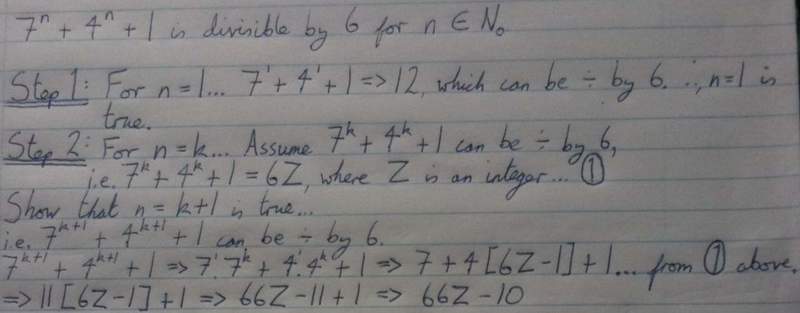 7ⁿ + 4ⁿ + 1 is divisible by 6 for n ∈ N₀
Step 1: For n = 1... 7¹ + 4¹ + 1 => 12, which can be ÷ by 6. ∴, n=1 is
true.
Step 2: For n = k... Assume 7ᵏ + 4ᵏ + 1 can be ÷ by 6,
i.e. 7ᵏ + 4ᵏ + 1 = 6Z, where Z is an integer... ①
Show that n = k+1 is true...
i.e. 7ᵏ⁺¹ + 4ᵏ⁺¹ + 1 can be ÷ by 6.
7ᵏ⁺¹ + 4ᵏ⁺¹ + 1 => 7¹.7ᵏ + 4¹.4ᵏ + 1 => 7 + 4[6Z-1] + 1... from ① above.
=> 11[6Z-1] + 1 => 66Z - 11 + 1 => 66Z - 10